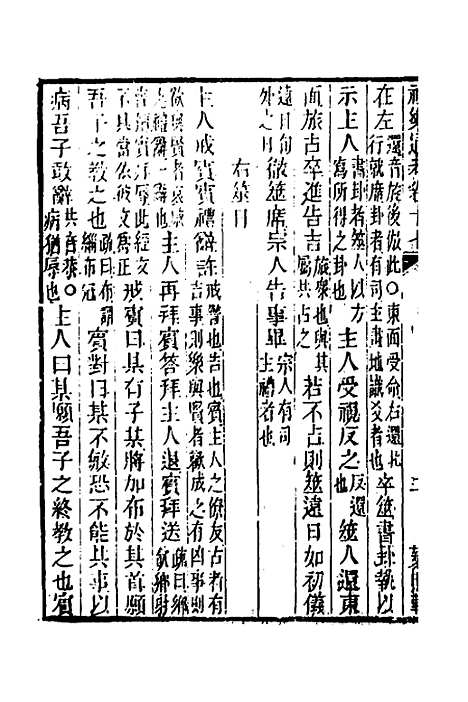 禮樂通考卷十七
在左還音旋後倣此○東面受命右還北行就席卦者有司主畫地識爻者也卒筮書卦執以
示主人書卦者筮人以方寫所得之卦也主人受視反之反還也筮人還東
面旅占卒進告吉旅衆也與其屬共占之若不吉則筮遠日如初儀
遠日旬外之日徹筮席宗人告事畢宗人有司主禮者也
右筮日
主人戒賓賓禮辭許戒警也告也賓主人之僚友古者有吉事則樂與賢者歡成之有凶事則
欲與賢者哀戚之禮辭一辭也主人再拜賓答拜主人退賓拜送疏曰鄉飲鄉射
戒賓曰某有子某將加布於其首願
吾子之教之也疏曰布謂緇布冠賓對曰某不敏恐不能共事以
病吾子敢辭共音恭○病猶辱也主人曰某願吾子之終教之也賓